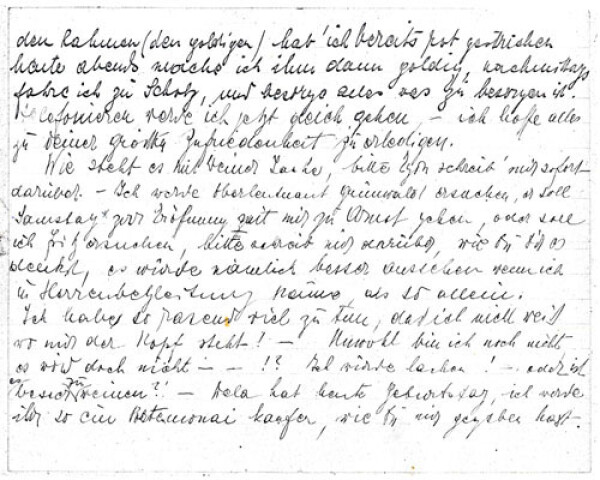 den Rahmen (den goldigen) hab' ich bereits rot gestrichen
heute abend mache ich ihn dann goldig, nachmittags
fahre ich zu Scholz, und besorge alles was zu besorgen ist.
Telefonieren werde ich jetzt gleich gehen, – ich hoffe alles
zu deiner größten Zufriedenheit zu erledigen.
Wie steht es mit deiner Sache, bitte schreib' mir sofort
darüber. – Ich werde Oberleutnant Grünwald ersuchen, er soll
Samstag zur Eröffnung mit mir zu Arnst gehen, oder soll
ich Fritz ersuchen, bitte schreib mir darüber, wie Du Dir es
denkst, es würde nämlich besser aussehen wenn ich
in Herrenbegleitung käme, als so allein.
Ich habe so rasend viel zu tun, daß ich nicht weiß
wo mir der Kopf steht! – Unwohl bin ich noch nicht
es wird doch nicht – – !? Ich würde lachen! – oder ist
besser zu weinen?! – Dela hat heute Geburtstag, ich werde
ihr so ein Portemonai kaufen, wie Du mir gegeben hast.